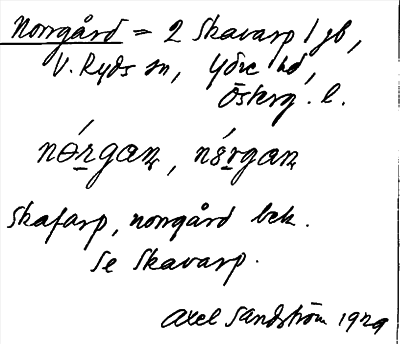 Norrgård = 2 Skavarp 1 gb,
V. Ryds sn, Ydre hd,
Österg. l.
nǿrgan, nśrgan
Skafarp, norrgård bek.
Se Skavarp.
Axel Sandström 1929